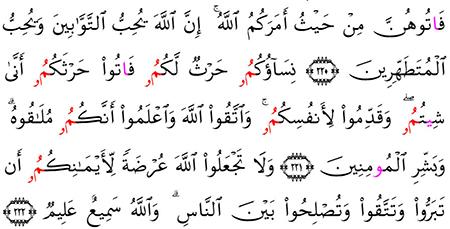 فَاتُوهُنَّ مِنْ حَيْثُ أَمَرَكُمُ ٱللَّهُ ۚ إِنَّ ٱللَّهَ يُحِبُّ ٱلتَّوَّٰبِينَ وَيُحِبُّ
ٱلْمُتَطَهِّرِينَ ٢٢٠ نِسَآؤُكُمُۥ حَرْثٌ لَّكُمُۥ فَاتُوا۟ حَرْثَكُمُۥ أَنَّىٰ
شِيتُمُۥ ۖ وَقَدِّمُوا۟ لِأَنفُسِكُمُۥ ۚ وَٱتَّقُوا۟ ٱللَّهَ وَٱعْلَمُوا۟ أَنَّكُمُۥ مُلَٰقُوهُ ۗ
وَبَشِّرِ ٱلْمُومِنِينَ ٢٢١ وَلَا تَجْعَلُوا۟ ٱللَّهَ عُرْضَةً لِّأَيْمَٰنِكُمُۥ أَن
تَبَرُّوا۟ وَتَتَّقُوا۟ وَتُصْلِحُوا۟ بَيْنَ ٱلنَّاسِ ۗ وَٱللَّهُ سَمِيعٌ عَلِيمٌ ٢٢٢